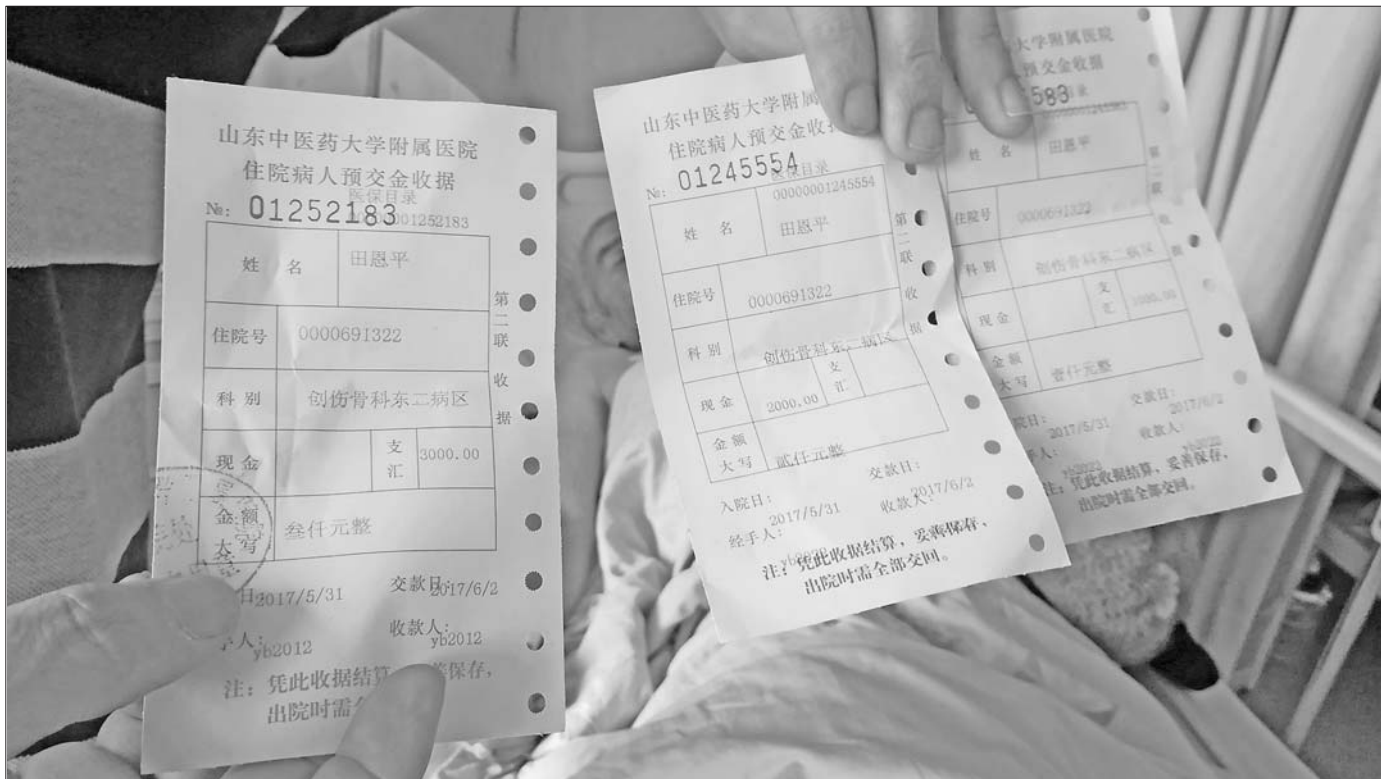 山东中医药大学附属医院
住院病人预交金收据
医保目录
№: 01252183
00000001252183
姓 名 田恩平
住院号 0000691322
科别 创伤骨科东二病区
现金 支汇 3000.00
金额大写 叁仟元整
日: 2017/5/31 交款日: 2017/6/2
人: yb2012 收款人: yb2012
注:凭此收据结算 保存,
出院时需
第二联 收据
山东中医药大学附属
住院病人预交金收
医保目录
№: 01245554
00000001245554
姓 名 田恩平
住院号 0000691322
科别 创伤骨科东二病区
现金 2000.00 支汇
金额大写 贰仟元整
入院日: 2017/5/31 交款日: 2017/6/2
经手人: 收款人:
注:凭此收据结算,妥善保存,
出院时需全部交回。
第二联 收据
大学附属医院
预交金收据
583
姓 名 田恩平
住院号 0000691322
科别 创伤骨科东二病区
现金 支汇 1000.00
金额大写 壹仟元整
院日: 2017/5/31 交款日: 2017/6/2
手人: yb2022 收款人: yb2022
注:凭此收据结算,妥善保存,
出院时需全部交回。
第二联 收据